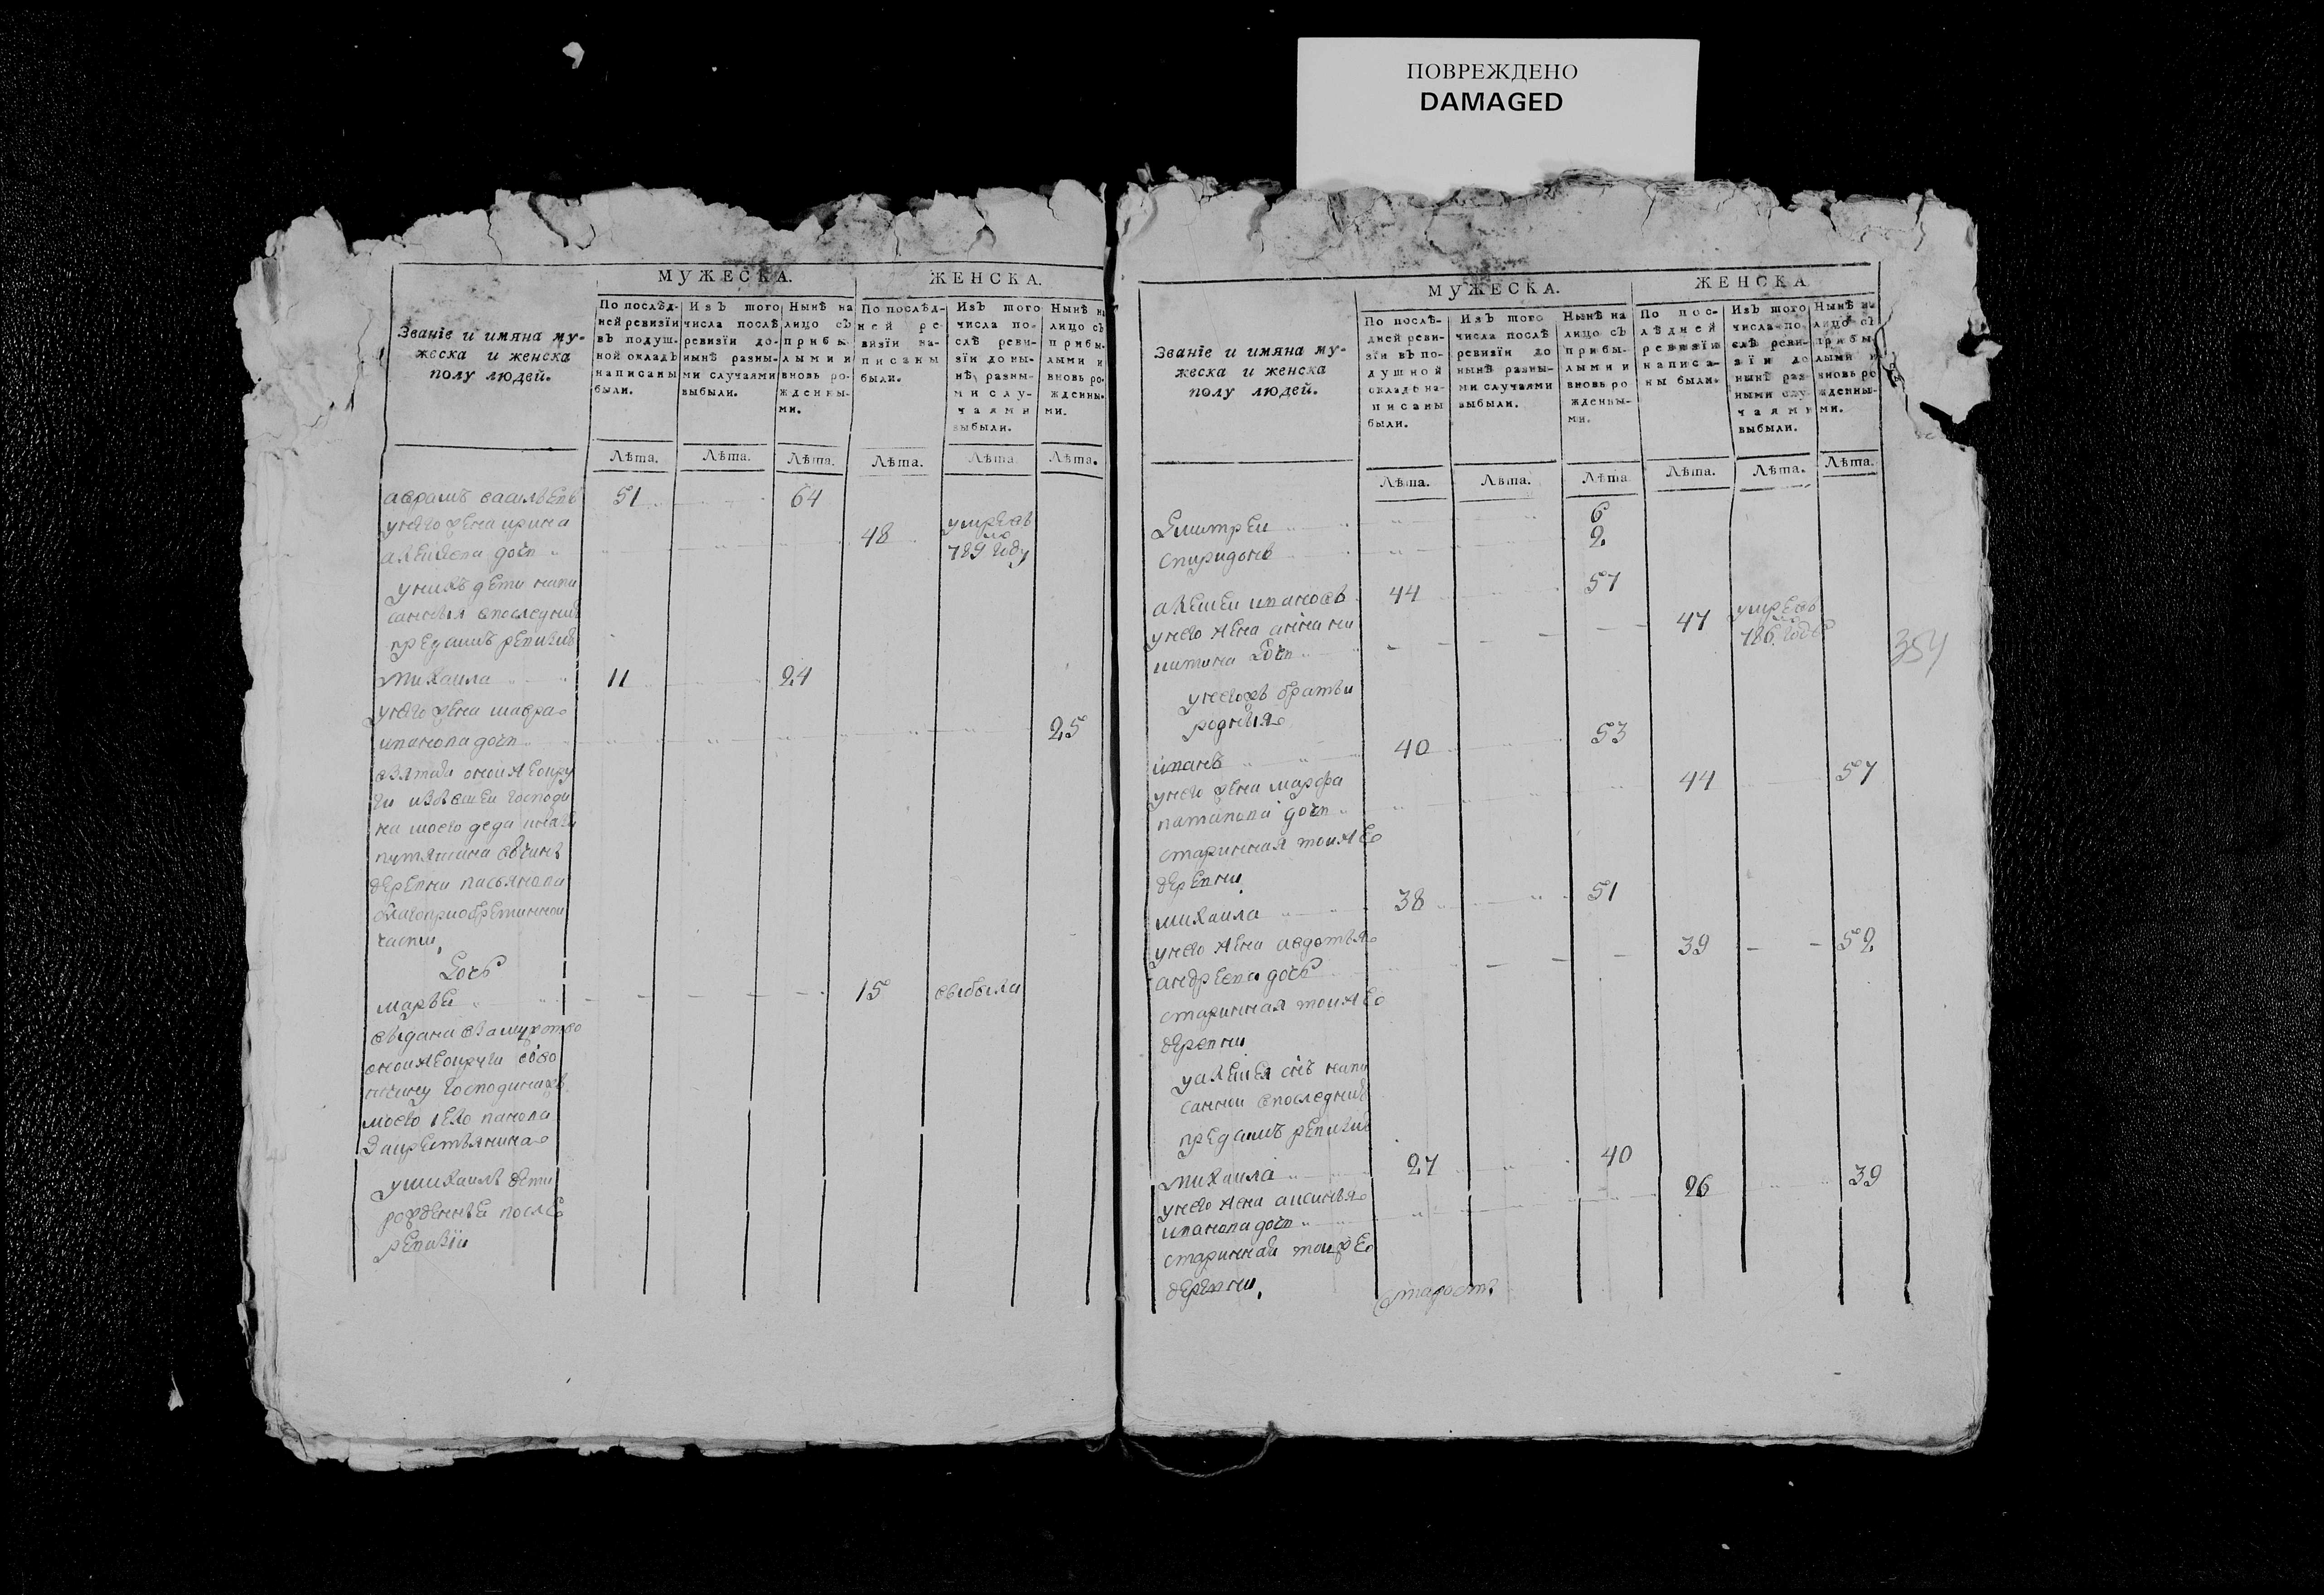 ПОВРЕЖДЕНО
DAMAGED
МУЖЕСКА.
ЖЕНСКА.
Званіе и имяна му-
жеска и женска
полу людей.
По послѣд-
ней ревизїи
въ подуш-
ной окладъ
написаны
были.
Изъ того
числа послѣ
ревизїи до-
нынѣ разны-
ми случаями
выбыли.
Нынѣ на
лицо съ
прибы-
лыми и
вновь ро-
жденны-
ми.
По послѣд-
ней ре-
визїи на-
писаны
были.
Изъ того
числа по-
слѣ реви-
зїи до ны-
нѣ разны-
ми слу-
чаями
выбыли.
Нынѣ на
лицо съ
прибы-
лыми и
вновь ро-
жденны-
ми.
Лѣта. Лѣта. Лѣта. Лѣта. Лѣта. Лѣта.
аврамъ васильевъ 51 64
унего жена ирина умре въ
алексеева дочь 48 789 году
унихъ дети напи
санныя впоследней
предсимъ ревизии
михаила 11 24
унего жена мавра
иванова дочь 25
взятая оной же окру
ги изъ
моего деда
вотчины
деревни
благоприобретенной
части
Дочь
марья 15 выбыла
выдана взамужство
оной же округи
вотчину господина
моего
за крестьянина
умихаилы дети
рожденные после
ревизии
МУЖЕСКА.
ЖЕНСКА
Званіе и имяна му-
жеска и женска
полу людей.
По послѣ-
дней реви-
зїи въ по-
душной
окладѣ на-
писаны
были.
Изъ того
числа послѣ
ревизїи до
нынѣ разны-
ми случаями
выбыли.
Нынѣ на
лицо съ
прибы-
лыми и
вновь ро
жденны-
ми.
По пос-
лѣдней
ревизїи
написа-
ны были.
Изъ того
числа по
слѣ реви-
зїи до
нынѣ раз
ными слу
чаями
выбыли.
Нынѣ на
лицо съ
прибы
лыми и
вновь ро
жденны-
ми.
Лѣта. Лѣта. Лѣта Лѣта. Лѣта. Лѣта.
Дмитреи 6
спиридонъ 2
алексеи ивановъ 44 57
унего жена анна ни 47 умре въ
китина дочь 786 годе
354
унегожъ братьи
родныя
иванъ 40 53
унего жена марфа 44 57
патапова дочь
старинная тойже
деревни
михаила 38 51
унего жена авдотья 39 52
андреева дочь
старинная тойже
деревни
уалексея сынъ напи
санной впоследней
предсимъ ревизии
михаила 27 40
унего жена аксинья 26 39
иванова дочь
старинная тойже
деревни
староста